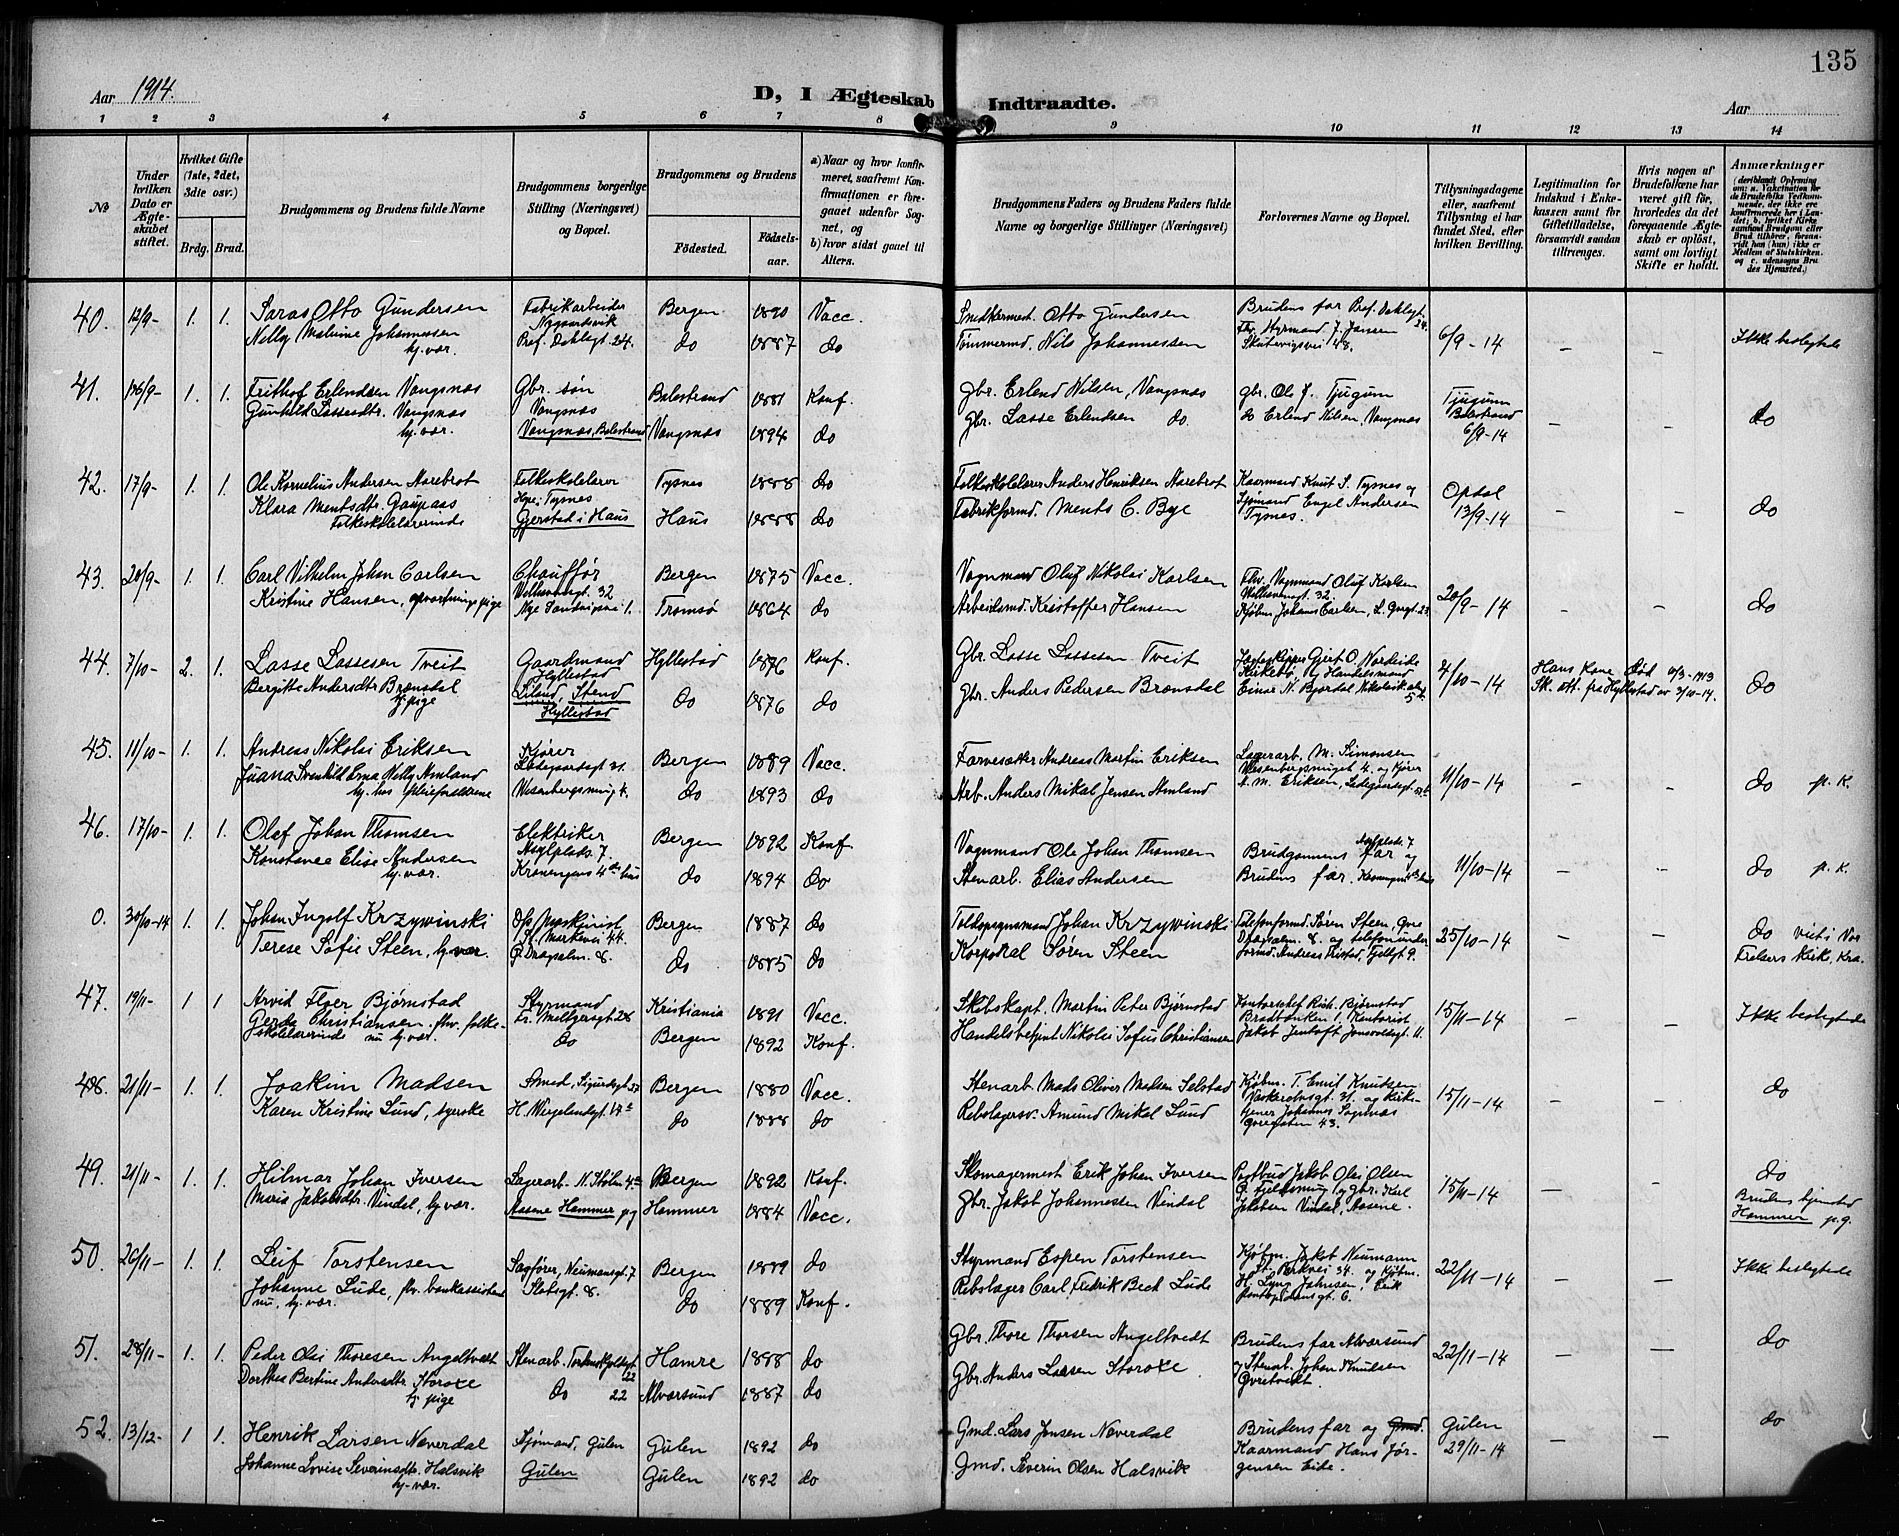 135
Aar 1914.
D, I Ægteskab Indtraadte.
Aar
1 2 3 4 5 6 7 8 9 10 11 12 13 14
№
Under hvilken Dato er Ægteskabet stiftet.
Hvilket Gifte (1ste, 2det, 3die osv.)
Brdg. Brud.
Brudgommens og Brudens fulde Navne
Brudgommens borgerlige Stilling (Næringsvei) og Bopæl.
Brudgommens og Brudens
Fødested. Fødselsaar.
a) Naar og hvor konfirmeret, saafremt Konfirmationen er foregaaet udenfor Sognet, og
b) hvor sidst gaaet til Alters.
Brudgommens Faders og Brudens Faders fulde Navne og borgerlige Stillinger (Næringsvei)
Forlovernes Navne og Bopæl.
Tillysningsdagene eller, saafremt Tillysning ei har fundet Sted, efter hvilken Bevilling.
Legitimation for Indskud i Enkekassen samt for Giftetilladelse, forsaavidt saadan tiltrænges.
Hvis nogen af Brudefolkene har været gift før, hvorledes da det foregaaende Ægteskab er opløst, samt om lovligt Skifte er holdt.
Anmærkninger (deriblandt Oplysning om: a. Vakcination for de Brudefolks Vedkommende, der ikke ere konfirmerede her i Landet; b. hvilket Kirkesamfund Brudgom eller Brud tilhører, forsaavidt han (hun) ikke er Medlem af Statskirken, og c. udensogns Brudes Hjemsted.)
40. 12/9- 1. 1. Otto Gundersen Fabrikarbeider Bergen 1890 Vacc. Otto Gundersen Brudens far Prof. Dahlsgt. 24. 6/9-14 - - Ikke beslegtede
Nelly Johannessen Prof. Dahlsgt. 24. do 1887 do Tømmermd. Nils Johannessen Styrmand J. Jansen
hj. vær. Skutevigsvei 48.
41. 1. 1. Frithof Erlendsen Vangsnæs Gbr. søn Balestrand 1881 Konf. Gbr. Erlend Nilsen, Vangsnæs Gbr. Ole J. Tjugum Tjugum - - do
Gunhild Lassesdtr. Vangsnæs Vangsnæs Gbr. Lasse Erlendsen do. do Erlend Nilsen, Vangsnæs Balestrand
hj. vær. Vangsnæs, Balestrand Vangsnæs 1894 do 6/9-14
42. 17/9- 1. 1. Ole Kornelius Andersen Aarebrot Folkeskolelærer Tysnes 1888 do Folkeskolelærer Anders Henriksen Aarebrot Kaarmand Knut S. Tysnes og Opdal - - do
Klara Mentsdtr. Gaupaas Tysnes Fabrikformd. Ments C. Bye Sjømand Engel Andersen 13/9-14
Folkeskolelærerinde Gjerstad i Haus Haus 1888 do Tysnes.
43. 20/9- 1. 1. Carl Vilhelm Johan Carlsen Chauffør Bergen 1875 Vacc. Vognmand Oluf Nikolai Karlsen Fhv. Vognmand Oluf Karlsen 20/9-14 - - do
Kristine Hansen, opvartningspige Nye Sandvigsvei 1. Tromsø 1864 do Arbeidsmd. Kristoffer Hansen Kjøbm. Johannes Carlsen,
44. 7/10- 2. 1. Lasse Lassesen Tveit Gaardmand Hyllestad 1876 Konf. Gbr. Lasse Lassesen Tveit Gjert O. Nordeide 4/10-14 Hans kone død 10/3-1913 do
Bergitte Andersdtr. Brænsdal Hyllestad do 1876 do Gbr. Anders Pedersen Brænsdal Kirkebø, og Handelsmand Sk. att. fra Hyllestad av 3/10-14.
hj. pige Hyllestad Einar N. Bjordal
45. 11/10- 1. 1. Andreas Nikolai Eriksen Kjører Bergen 1889 Vacc. Farvesætter Andreas Martin Eriksen Lagerarb. M. Simonsen 11/10-14 - - do p. K.
Erna Nelly Amland Ladegaardsgt. do 1893 do Arb. Anders Mikal Jensen Amland Wesenbergsmuget 4. og Kjører
hj. hos pleieforældrene Wesenbergsmug 4. A. M. Eriksen, Ladegaardsgt.
46. 17/10- 1. 1. Olaf Johan Thomsen Elektriker Bergen 1892 Konf. Vognmand Ole Johan Thomsen Brudgommens far og Asylplads. 7 11/10-14 - - do p. K.
Konstance Elise Andersen Asylplads. 7. do 1894 do Stenarb. Elias Andersen Brudens far.
hj. vær. Kroneng.
0. 30/10-14 1. 1. Johan Ingolf Krzywinski Maskinist Bergen 1887 do Toldopsynsmand Johan Krzywinski Telefonformd. Søren Steen, Øvre 25/10-14 - - do viet i Vor
Terese Sofie Steen, hj. vær. St. Markevei 44. do 1885 do Korporal Søren Steen Dragsalm. 8. og telefonunder- Frelsers Kirk, Kra.
Ø. Dragsalm. 8. formd. Andreas Fristad, Fjellgt 9.
47. 19/11- 1 1 Arvid Floer Bjørnstad Styrmand Kristiania 1891 Vacc. Skibskapt. Martin Peter Bjørnstad Kontorchef Rich. Bjørnstad 15/11-14 - - Ikke beslegtede
Gerda Christiansen, fhv. folke- Fr. Meltzersgt 28 Bergen 1892 Konf. Handelsbetjent Nikolai Sofus Christiansen Bradbænken 1, Kontorist
skolelærerinde nu hj. vær. do Jakob Jentoft
48. 21/11- 1. 1. Joakim Madsen Smed, Sigurdsgt Bergen 1880 Vacc. Stenarb. Mads Oliver Madsen Selstad Kjøbm. T. Emil Knudsen 15/11-14 - - do
Karen Kristine Lund, syerske H. Wergelandsgt 17 do 1888 do Rebslagersv. Amund Mikal Lund og Kirke-
tjener Johannes Sagevæs
43.
49. 21/11- 1. 1. Hilmar Johan Iversen Lagerarb. N. Stølen 4 Bergen 1892 Konf. Skomagermest. Erik Johan Iversen Postbud Jakob Olai Olsen 15/11-14 - - do
Maria Jakobsdtr. Vindal, hj. vær. Aasene Hammer pg Hammer 1884 Vacc. Gbr. Jakob Johannessen Vindal og Gbr. Karl Brudens hjemsted
Jakobsen Vindal, Aasene. Hammer p.g.
50. 26/11- 1. 1. Leif Torstensen Sagfører, Neumansgt. 7 Bergen 1889 do Styrmand Espen Torstensen Kjøbm. Jakob Neumann 22/11-14 - - Ikke beslegtede
Johanne Lude, fhv. bankassistent Slotsgt. 8. do 1889 Konf. Rebslager Carl Fredrik Beck Lude St. Parkvei 34. og Kjøbm.
nu, hj. vær. Pontoppidansgt. 6.
51. 28/11- 1. 1. Peder Olai Thoresen Angeltvedt Stenarb. Tordenskjoldsgt. 22 Hamre 1888 do Gbr. Thore Thorsen Angeltvedt Brudens far Alværsund 22/11-14 - - do
Dorthea Bertine Andersdtr. Storoxe do 22 Alværsund 1887 do Gbr. Anders Larsen Storoxe og Stenarb. Johan Knudsen
hj. pige
52. 13/12- 1 1. Henrik Larsen Næverdal Sjømand, Gulen Gulen 1892 do Gmd. Lars Jensen Næverdal Brudens far og Gmd. Gulen - - do
Johanne Lovise Severinsdtr. Halsvik Gulen Gulen 1892 do Gmd. Severin Olsen Halsvik Kaarmand Hans Jør- 29/11-14
hj. vær. gensen Eide.